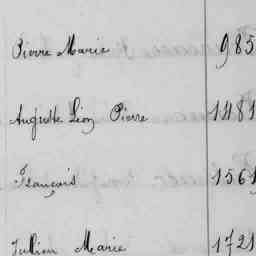 Pierre Marie 985
Auguste Léon Pierre 1481
François 1561
Jullien Marie 1721